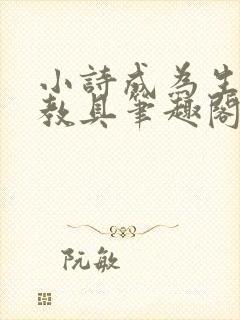 小詩成為生
教具筆趣閣
阮敏